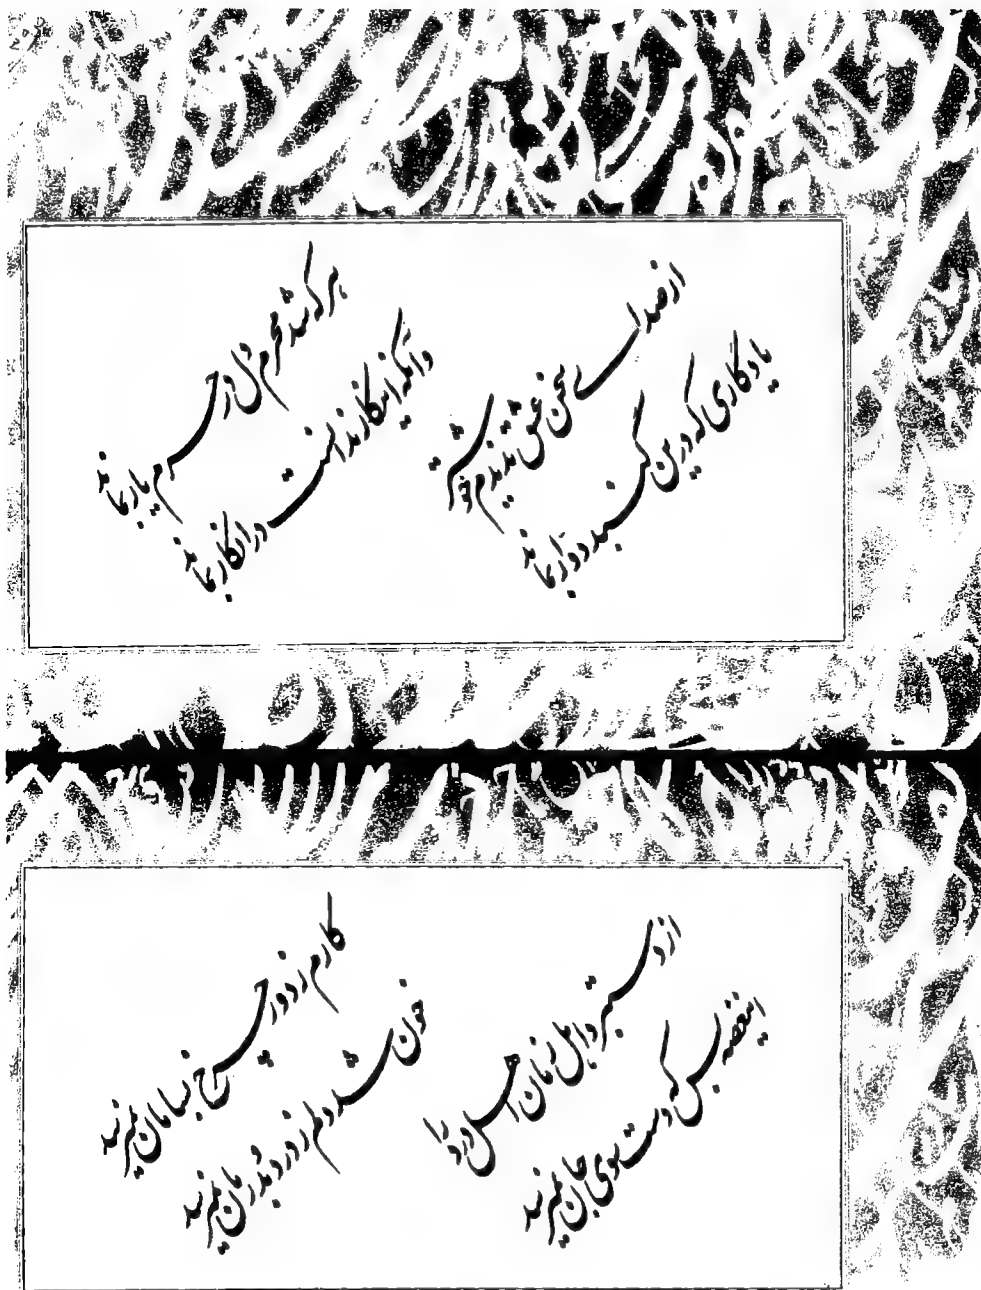 از صدای سخن عشق ندیدم خوشتر
یادگاری که درین گنبد دوار بماند
هر که شد محرم دل در حرم یار بماند
وآنکه اینکار ندانست در انکار بماند
از دستبرد اهل زمان اهل درد را
اینغصه بس که دست سوی جان نمیرسد
کارم ز دور چرخ بسامان نمیرسد
خون شد دلم ز درد و بدرمان نمیرسد